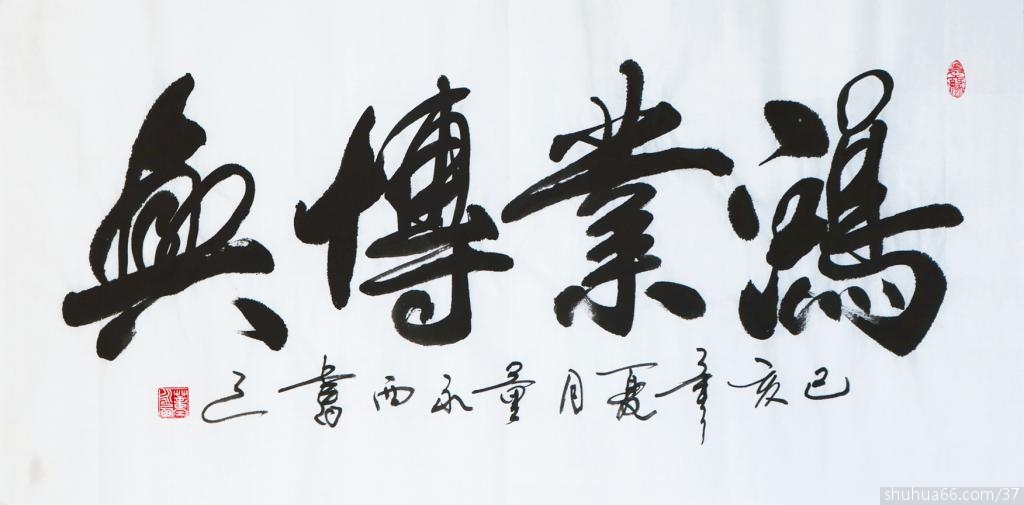 鴻業博興
己亥年夏月董永西書之
shuhua66.com/37